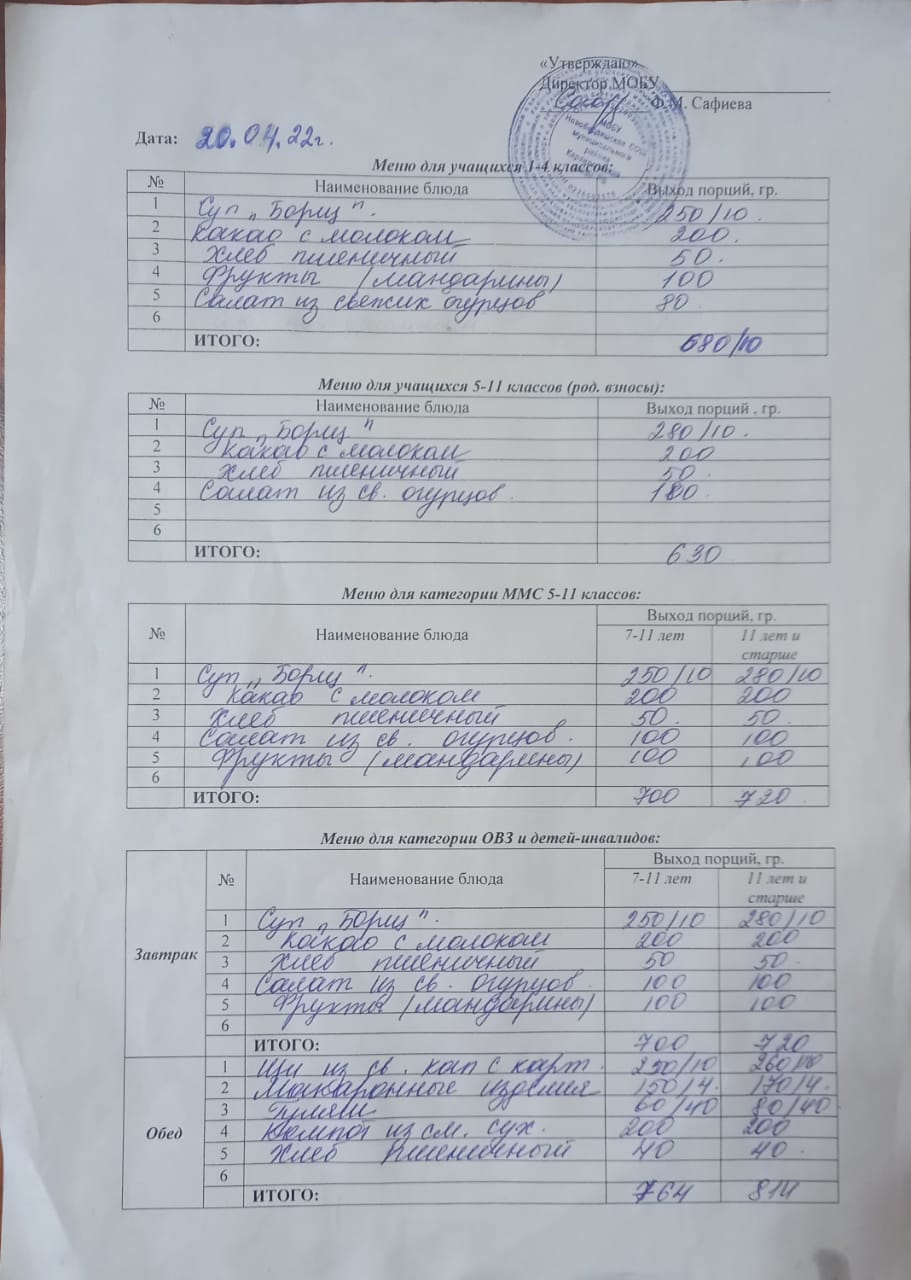 «Утверждаю»
Директор МОБУ
Ф.М. Сафиева
МОБУ
Дата: 20.04.22г.
Меню для учащихся 1-4 классов:
№ Наименование блюда Выход порций, гр.
1 Суп „Борщ". 250/10.
2 Какао с молоком 200.
3 Хлеб пшеничный 50.
4 Фрукты (мандарины) 100
5 Салат из свежих огурцов 80.
6
ИТОГО: 680/10
Меню для учащихся 5-11 классов (род. взносы):
№ Наименование блюда Выход порций , гр.
1 Суп „Борщ" 280/10.
2 Какао с молоком 200
3 Хлеб пшеничный 50.
4 Салат из св. огурцов. 100.
5
6
ИТОГО: 630
Меню для категории ММС 5-11 классов:
№ Наименование блюда Выход порций, гр.
7-11 лет 11 лет и старше
1 Суп „Борщ". 250/10 280/10
2 Какао с молоком 200 200
3 Хлеб пшеничный 50. 50.
4 Салат из св. огурцов. 100 100
5 Фрукты (мандарины) 100 100
6
ИТОГО: 700 720
Меню для категории ОВЗ и детей-инвалидов:
№ Наименование блюда Выход порций, гр.
7-11 лет 11 лет и старше
Завтрак
1 Суп „Борщ". 250/10 280/10
2 Какао с молоком 200 200
3 Хлеб пшеничный 50 50.
4 Салат из св. огурцов. 100 100
5 Фрукты (мандарины) 100 100
6
ИТОГО: 700 720
Обед
1 Щи из св. кап с карт. 250/10 260/10
2 Макаронные изделия 150/4. 170/4.
3 Гуляш 60/40 80/40
4 Компот из см. сух. 200 200
5 Хлеб пшеничный 40 40.
6
ИТОГО: 764 814